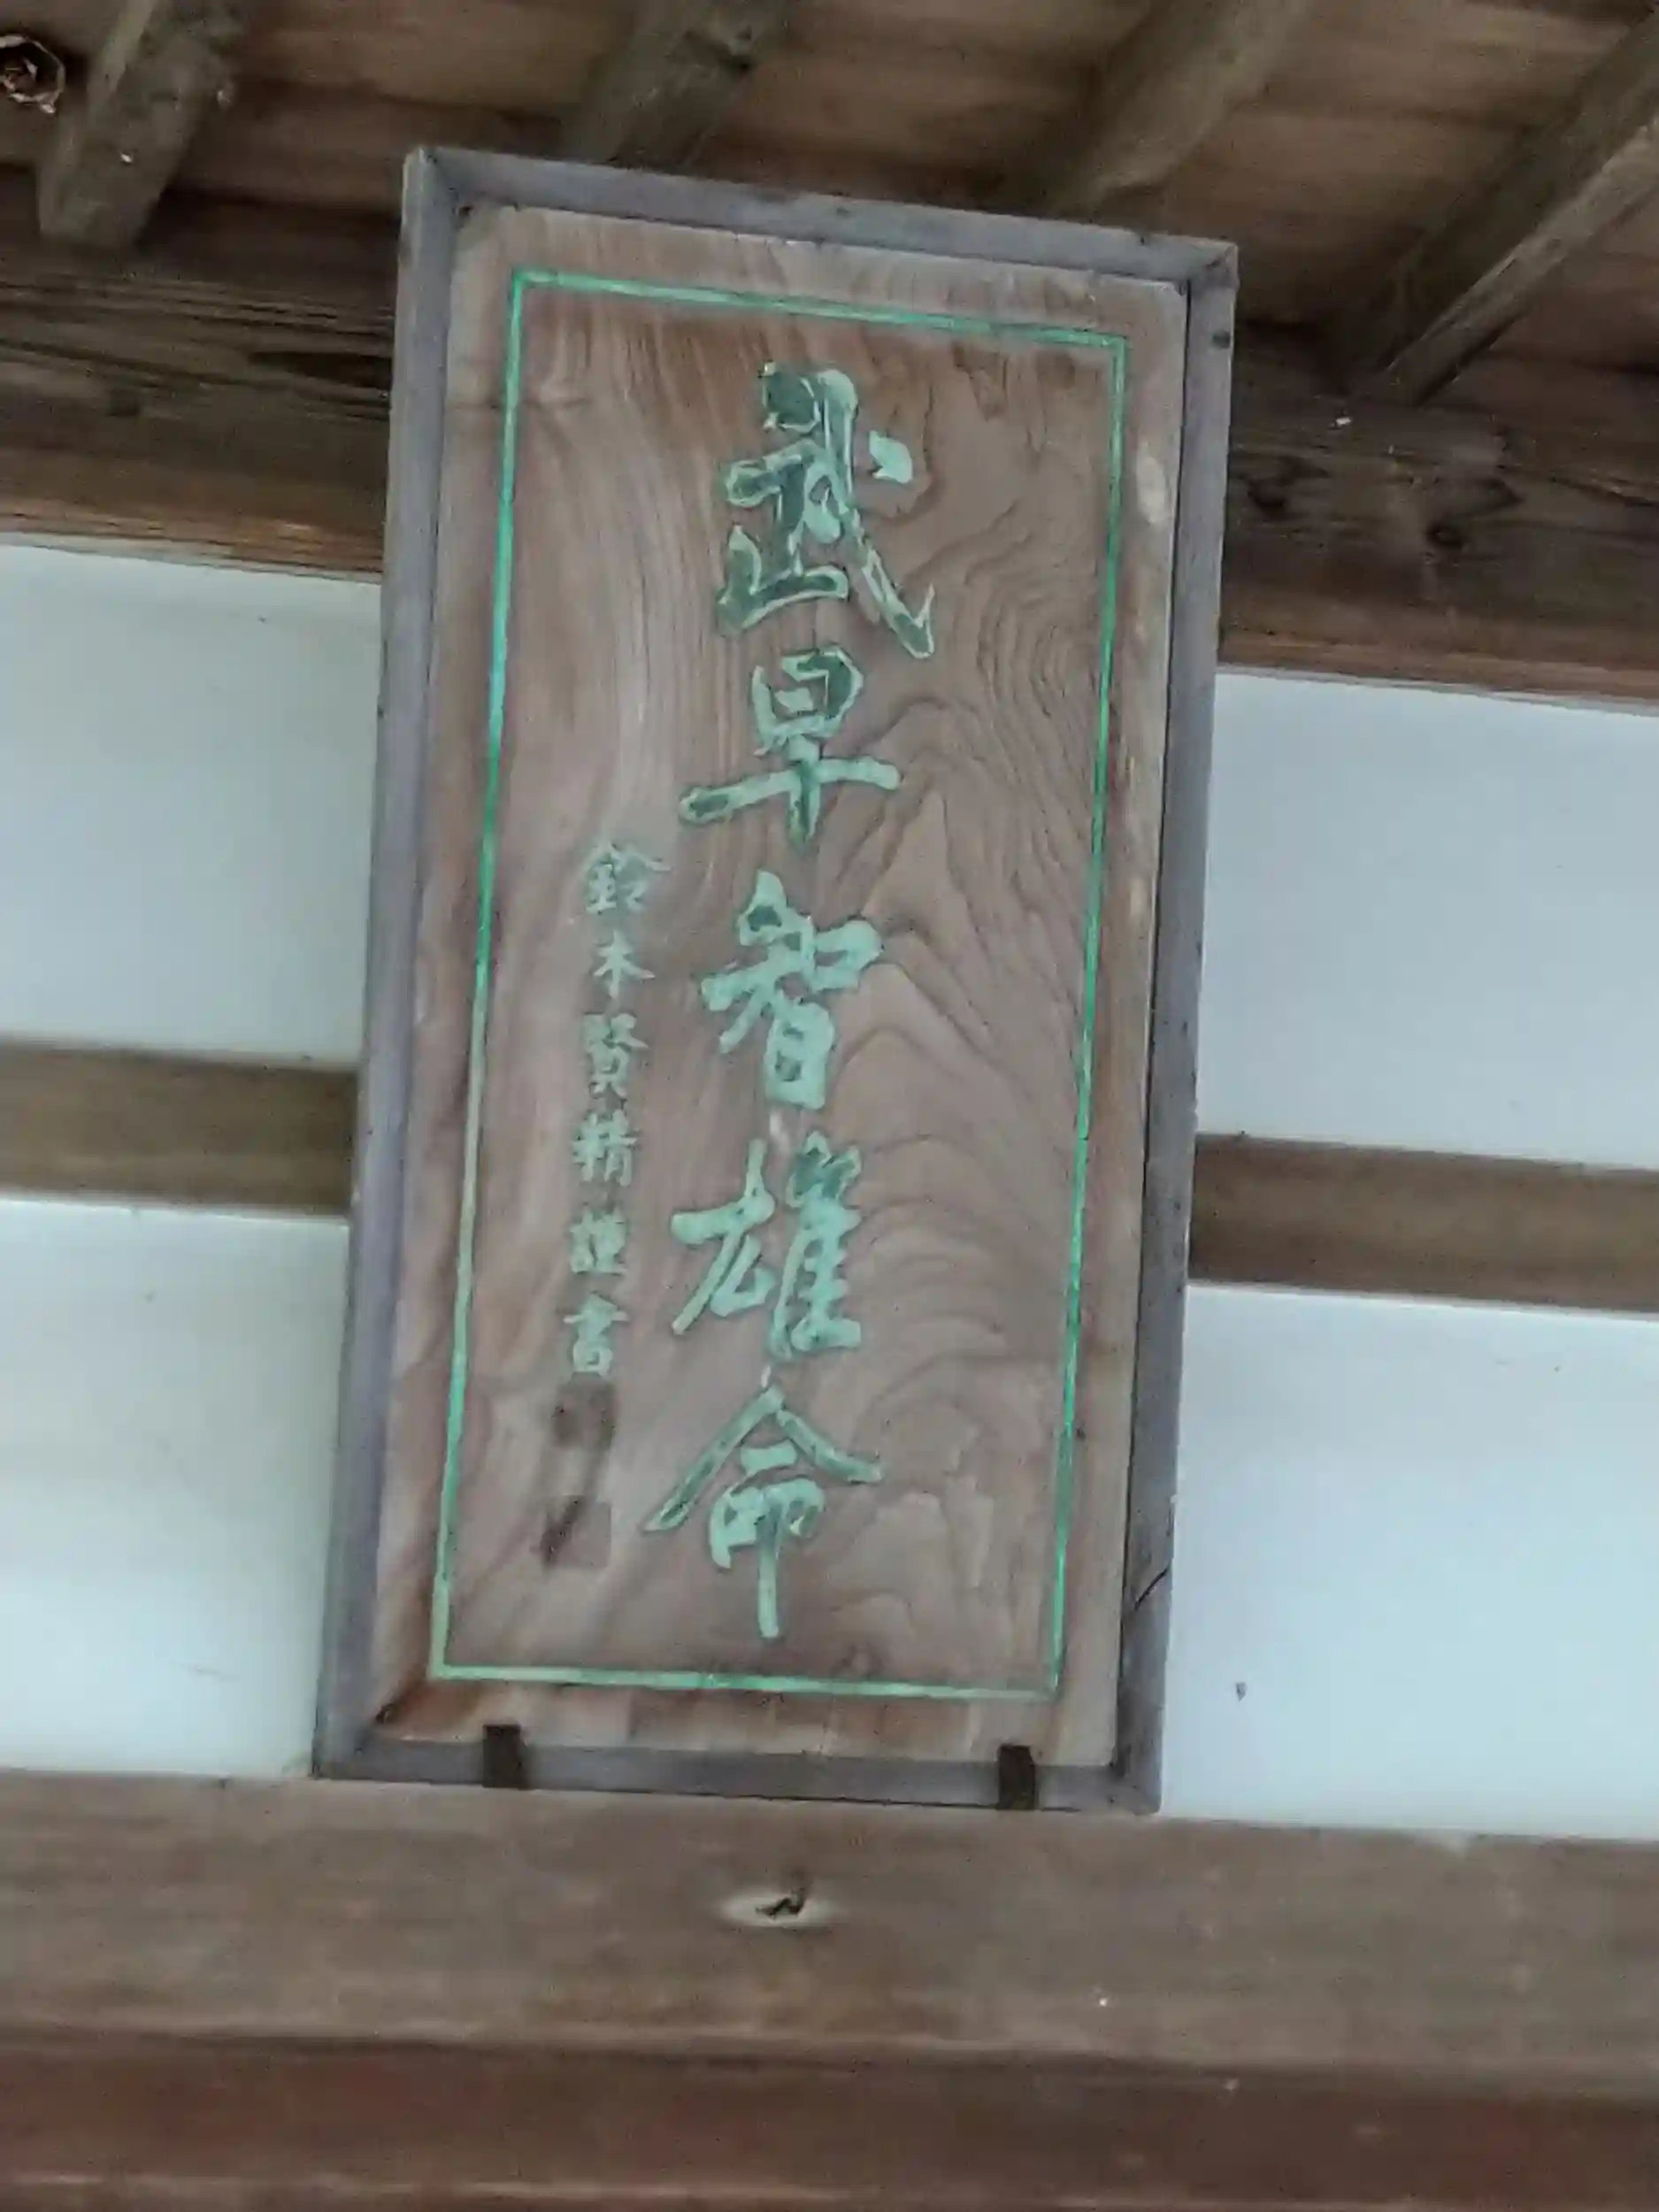 武早智雄命
鈴木賢精謹書